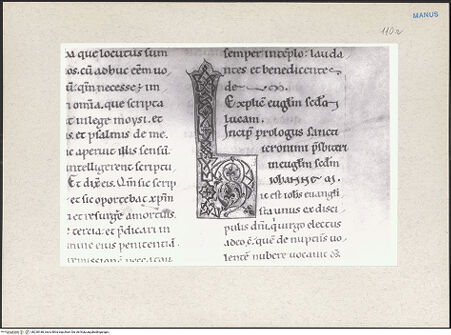 MANUS
110r
xa que locutus sum
os. cū adhuc eēm uo
ū: qm̄ necesse ē im
omnia. que scripta
t in lege moysi. et
is. et psalmis de me.
c aperuit illis sensū.
intelligerent scriptu
Et dixit eis. Qm̄ sic scrip
et sic oportebat xp̄m
et resurgē a mortuis.
tercia: et p̄dicari in
mine eius penitentiā
remissionē
semper in tēplo: lauda
ntes et benedicentes
de
Explic̄ euglm̄ scdm̄
lucam.
Incip̄ prologus sancti
ieronimi p̄sbiteri
in euglm̄ scdm̄
iohannem.
ic est iohs euangeli
sta unus ex disci
pulis dn̄i. qui uirgo electus
a deo ē. quē de nuptiis uo
lentē nubere uocauit ds̄.